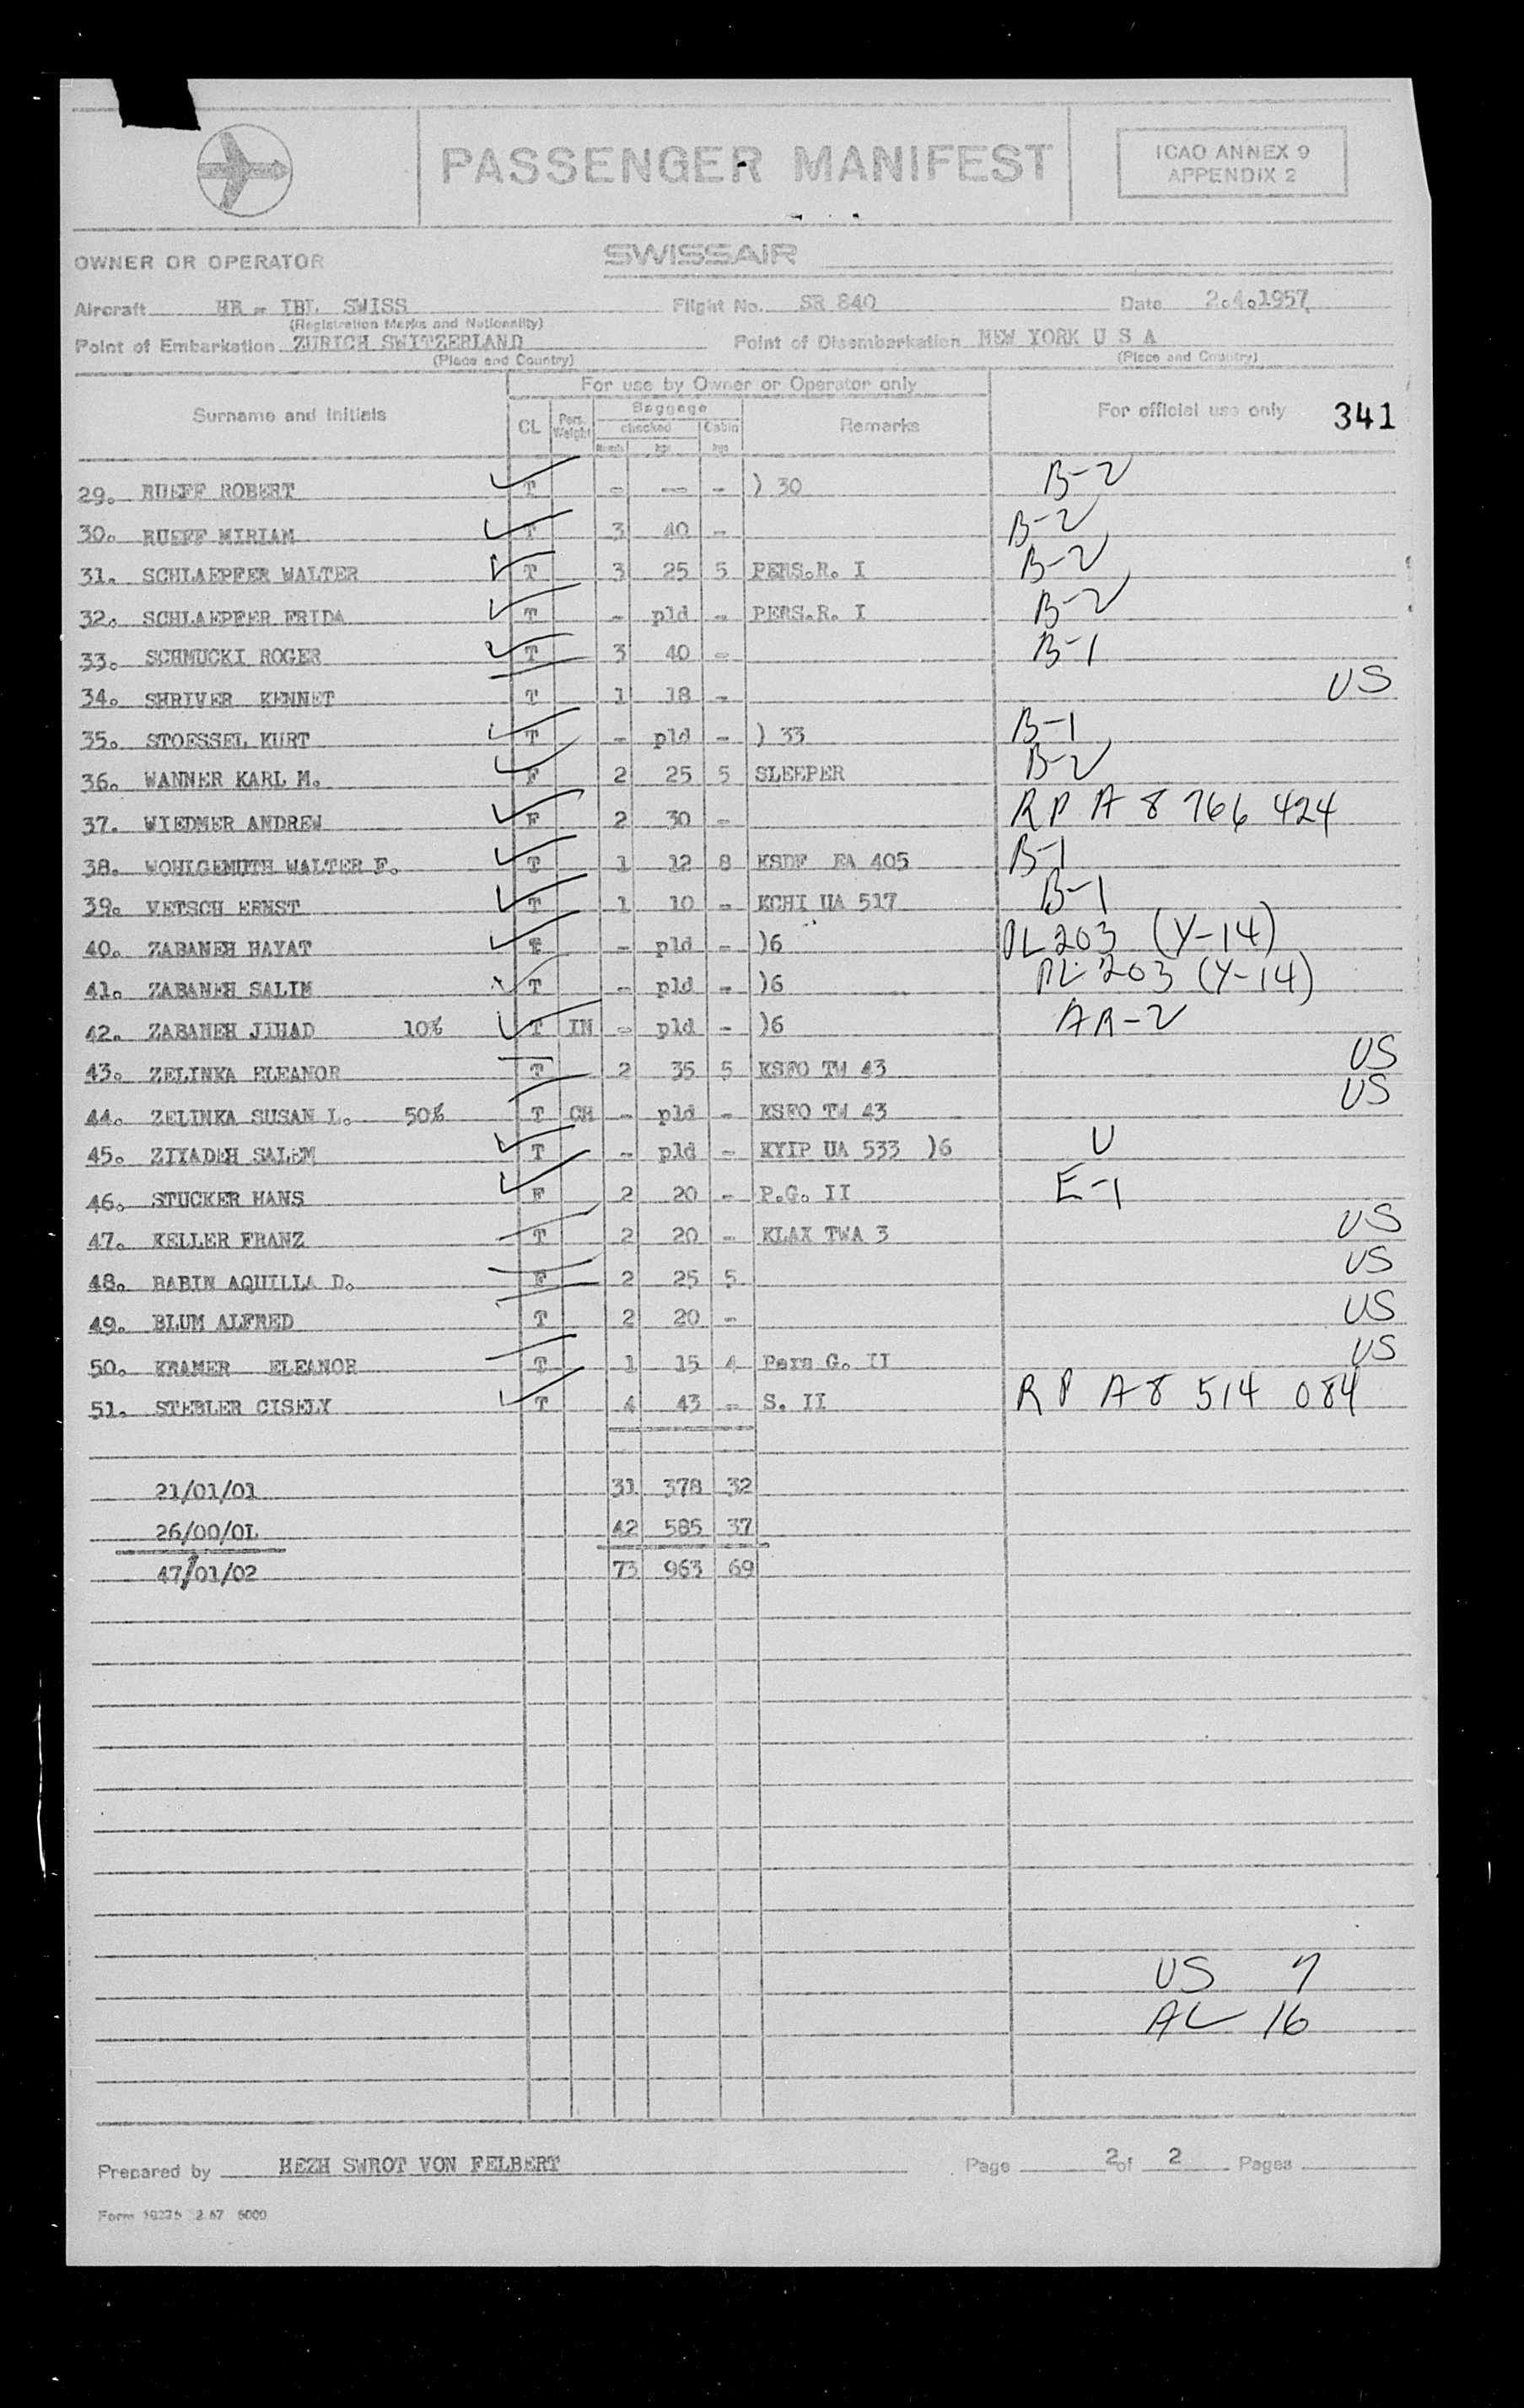 PASSENGER MANIFEST
ICAO ANNEX 9
APPENDIX 2
OWNER OR OPERATOR SWISSAIR
Aircraft HB - IBL SWISS Flight No. SR 840 Date 2.4.1957
(Registration Marks and Nationality)
Point of Embarkation ZURICH SWITZERLAND Point of Disembarkation NEW YORK U S A
(Place and Country) (Place and Country)
For use by Owner or Operator only
Surname and Initials CL Pers. Weight Baggage checked Cabin Remarks For official use only 341
Numb. kgs kgs
29. RUEFF ROBERT T - -- - ) 30 B-2
30. RUEFF MIRIAM T 3 40 - B-2
31. SCHLAEPFER WALTER T 3 25 5 PERS.R. I B-2
32. SCHLAEPFER FRIDA T - pld - PERS.R. I B-2
33. SCHMUCKI ROGER T 3 40 - B-1
34. SHRIVER KENNET T 1 18 - US
35. STOESSEL KURT T - pld - ) 33 B-1
36. WANNER KARL M. F 2 25 5 SLEEPER B-2
37. WIEDMER ANDREW F 2 30 - R P A 8 766 424
38. WOHLGEMUTH WALTER F. T 1 12 8 KSDF EA 405 B-1
39. VETSCH ERNST T 1 10 - KCHI UA 517 B-1
40. ZABANEH HAYAT T - pld - )6 PL 203 (Y-14)
41. ZABANEH SALIM T - pld - )6 PL 203 (Y-14)
42. ZABANEH JIHAD 10% T IN - pld - )6 AR-2
43. ZELINKA ELEANOR T 2 35 5 KSFO TW 43 US
44. ZELINKA SUSAN L. 50% T CH - pld - KSFO TW 43 US
45. ZIYADEH SALEM T - pld - KYIP UA 533 )6 U
46. STUCKER HANS F 2 20 - P.G. II E-1
47. KELLER FRANZ T 2 20 - KLAX TWA 3 US
48. BABIN AQUILLA D. F 2 25 5 US
49. BLUM ALFRED T 2 20 - US
50. KRAMER ELEANOR T 1 15 4 Pers G. II US
51. STEBLER CISELY T 4 43 - S. II R P A8 514 084
21/01/01 31 378 32
26/00/01 42 585 37
47/01/02 73 963 69
US 7
AL 16
Prepared by HEZH SWROT VON FELBERT Page 2 of 2 Pages
Form 10275 2.57 5000